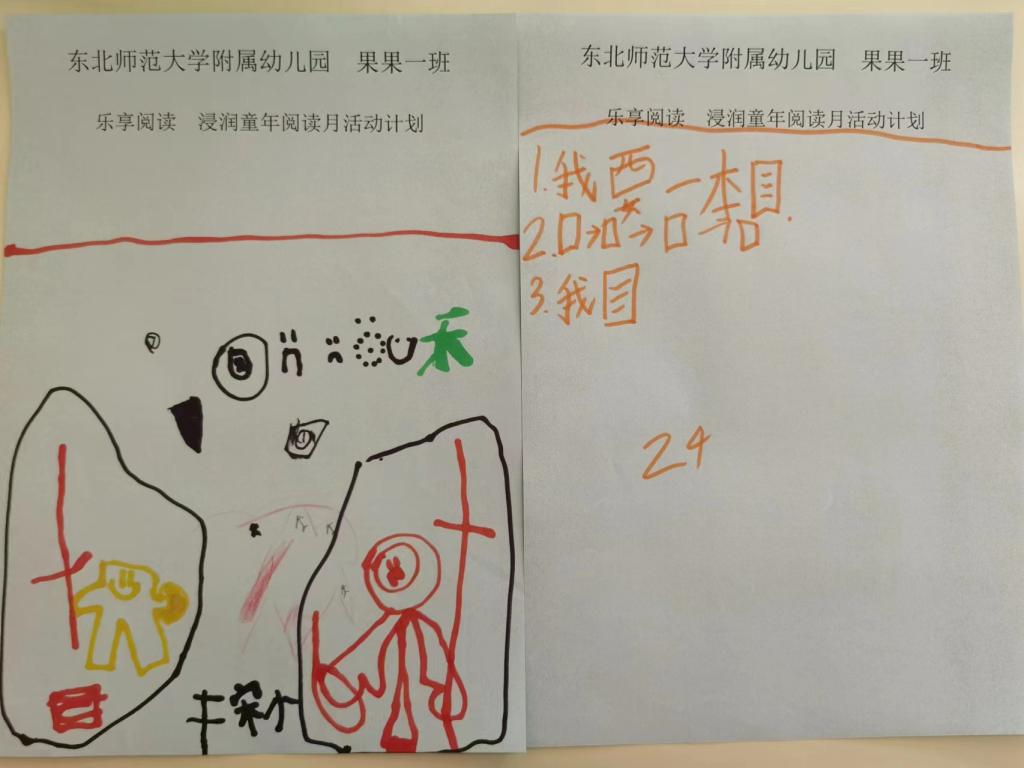 东北师范大学附属幼儿园 果果一班
乐享阅读 浸润童年阅读月活动计划
禾
东北师范大学附属幼儿园 果果一班
乐享阅读 浸润童年阅读月活动计划
1.我西一本目
2.
3.我目
24